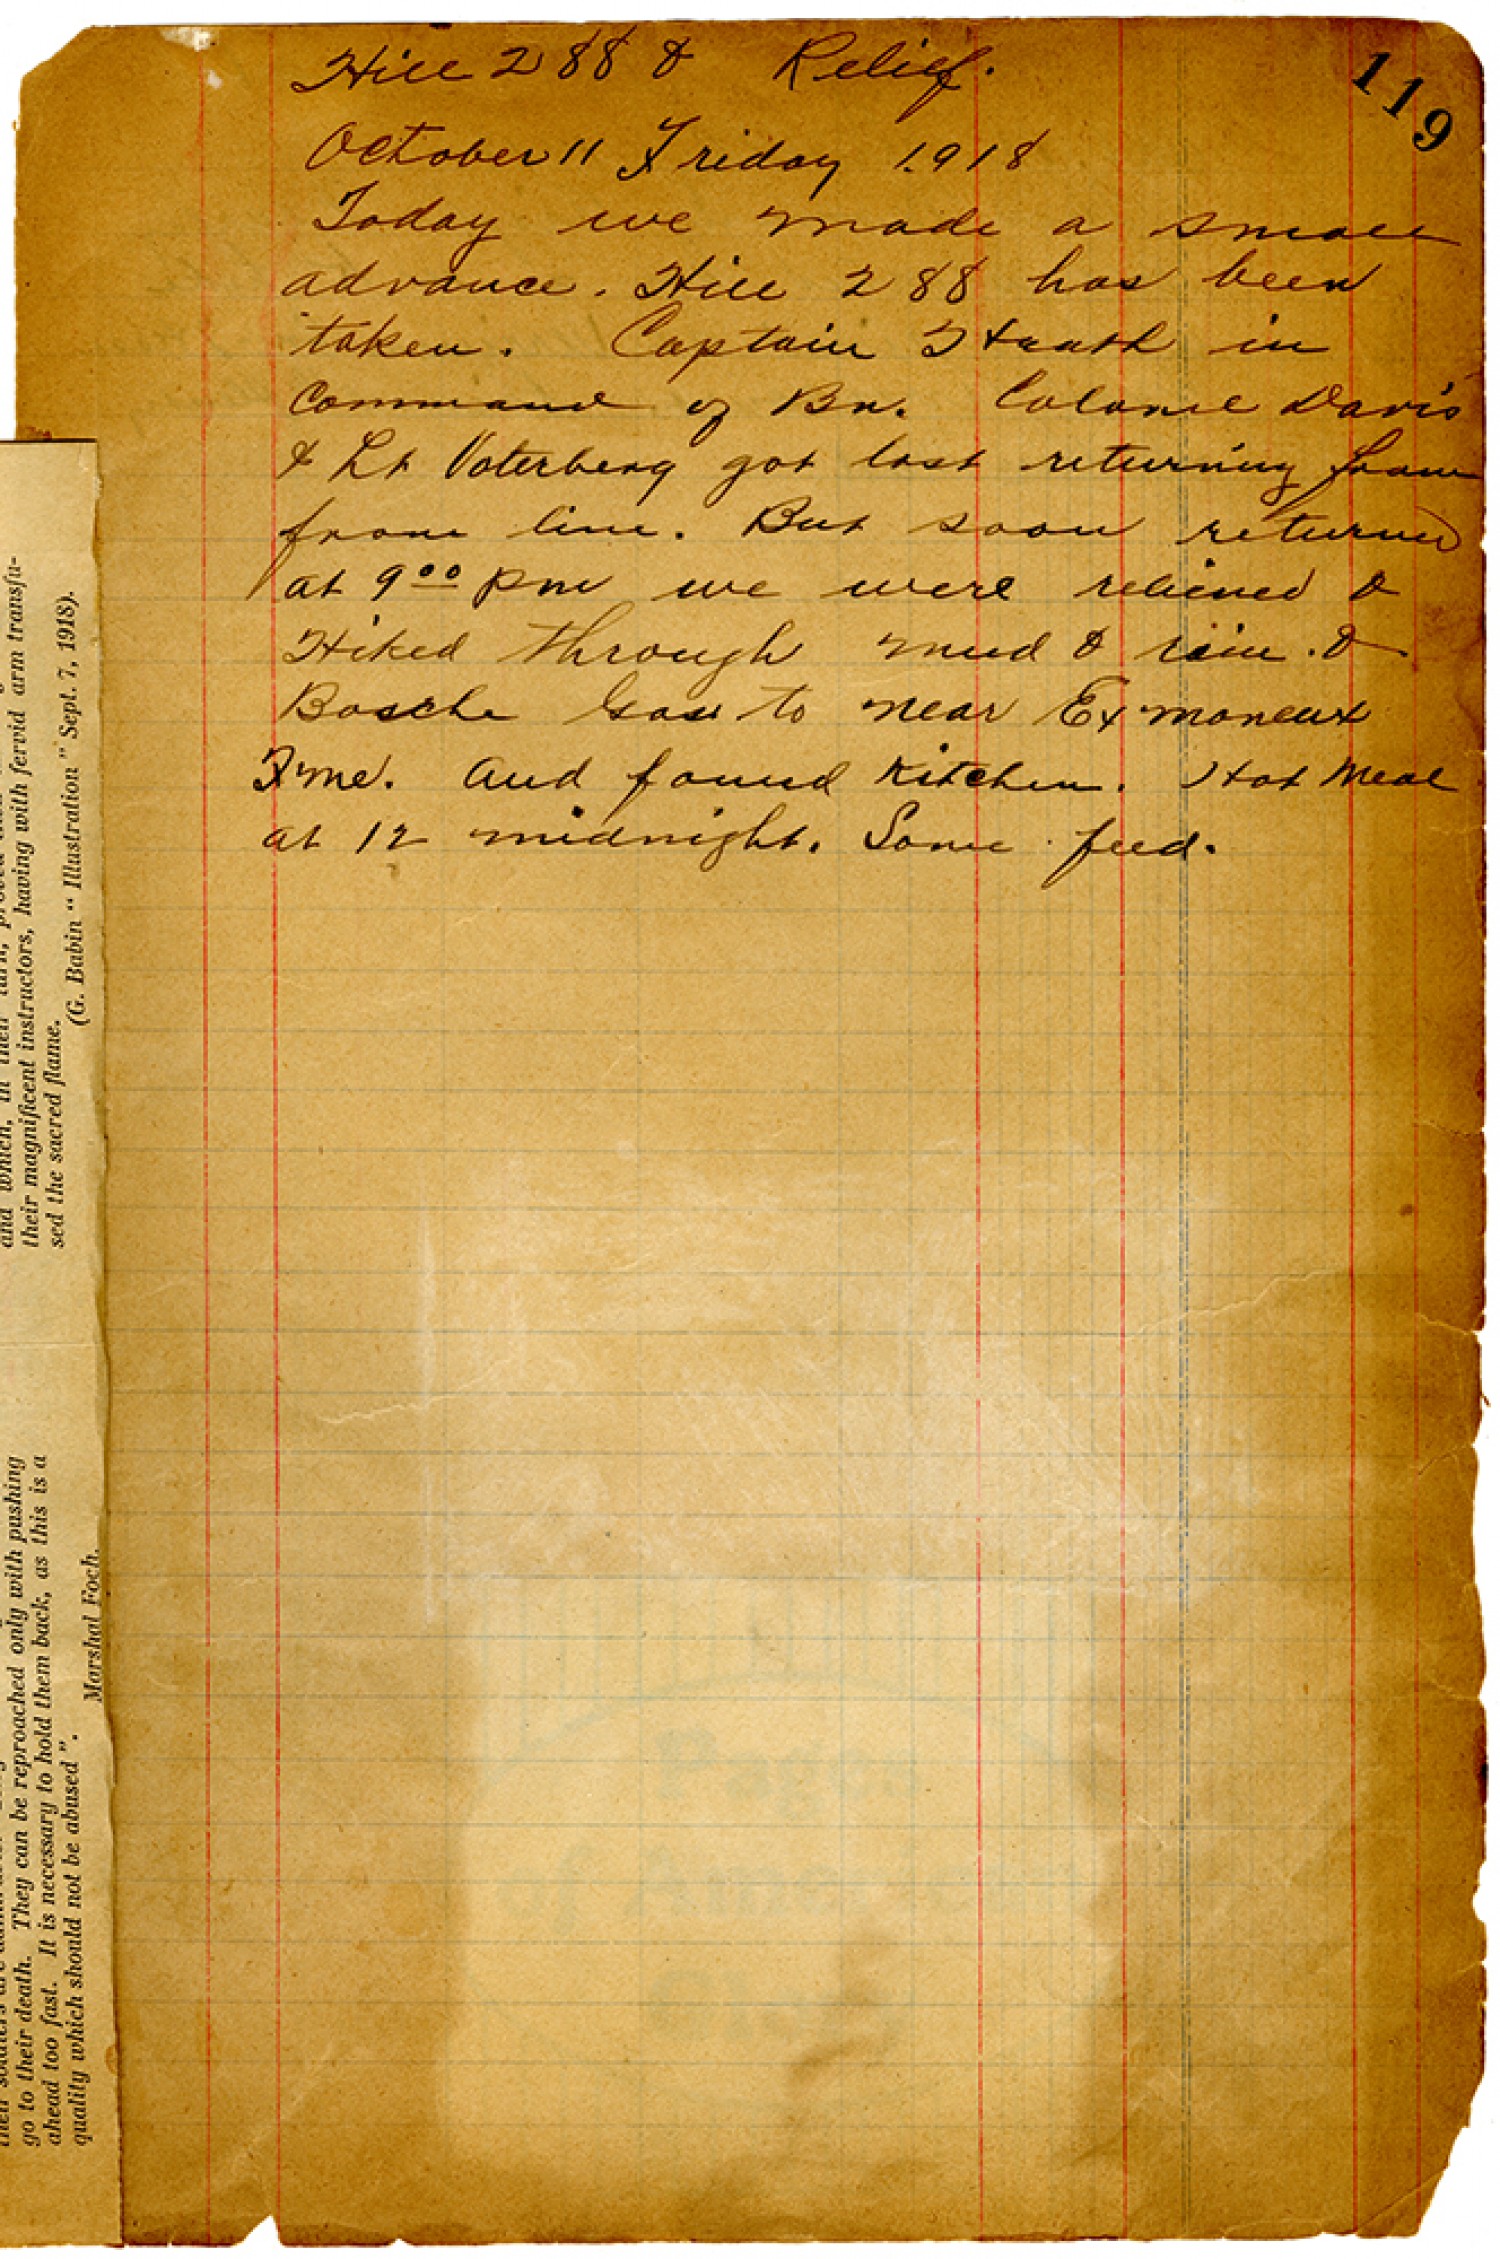 119
Hill 288 & Relief.
October 11 Friday 1918
Today we made a small
advance. Hill 288 has been
taken. Captain in
Command of Bn. Colonel Davis
& Lt Voterberg got lost returning from
front line. But soon returned
at 9 00 pm we were relieved &
Hiked through mud & rain. &
Bosche Gas to near Exmoneux
Frme. And found Kitchen. Hot Meal
at 12 midnight. Some feed.
their magnificent instructors, having with fervid arm transfu-
sed the sacred flame.
(G. Babin “ Illustration ” Sept. 7, 1918).
go to their death. They can be reproached only with pushing
ahead too fast. It is necessary to hold them back, as this is a
quality which should not be abused”.
Marshal Foch.